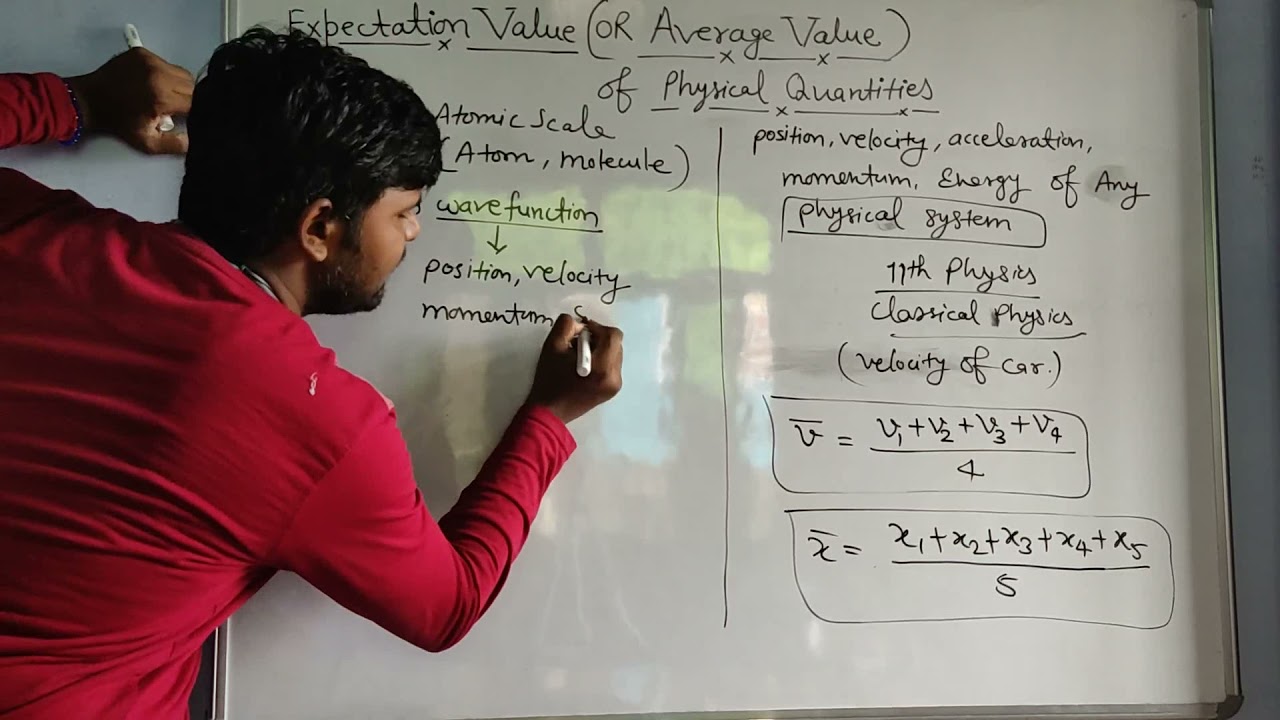 Expectation Value (OR Average Value)
of Physical Quantities
Atomic Scale
(Atom, molecule)
wavefunction
↓
position, velocity
momentum
position, velocity, acceleration,
momentum, Energy of Any
physical system
11th Physics
Classical Physics
(velocity of car.)
v̅ = (v₁+v₂+v₃+v₄)/4
x̅ = (x₁+x₂+x₃+x₄+x₅)/5